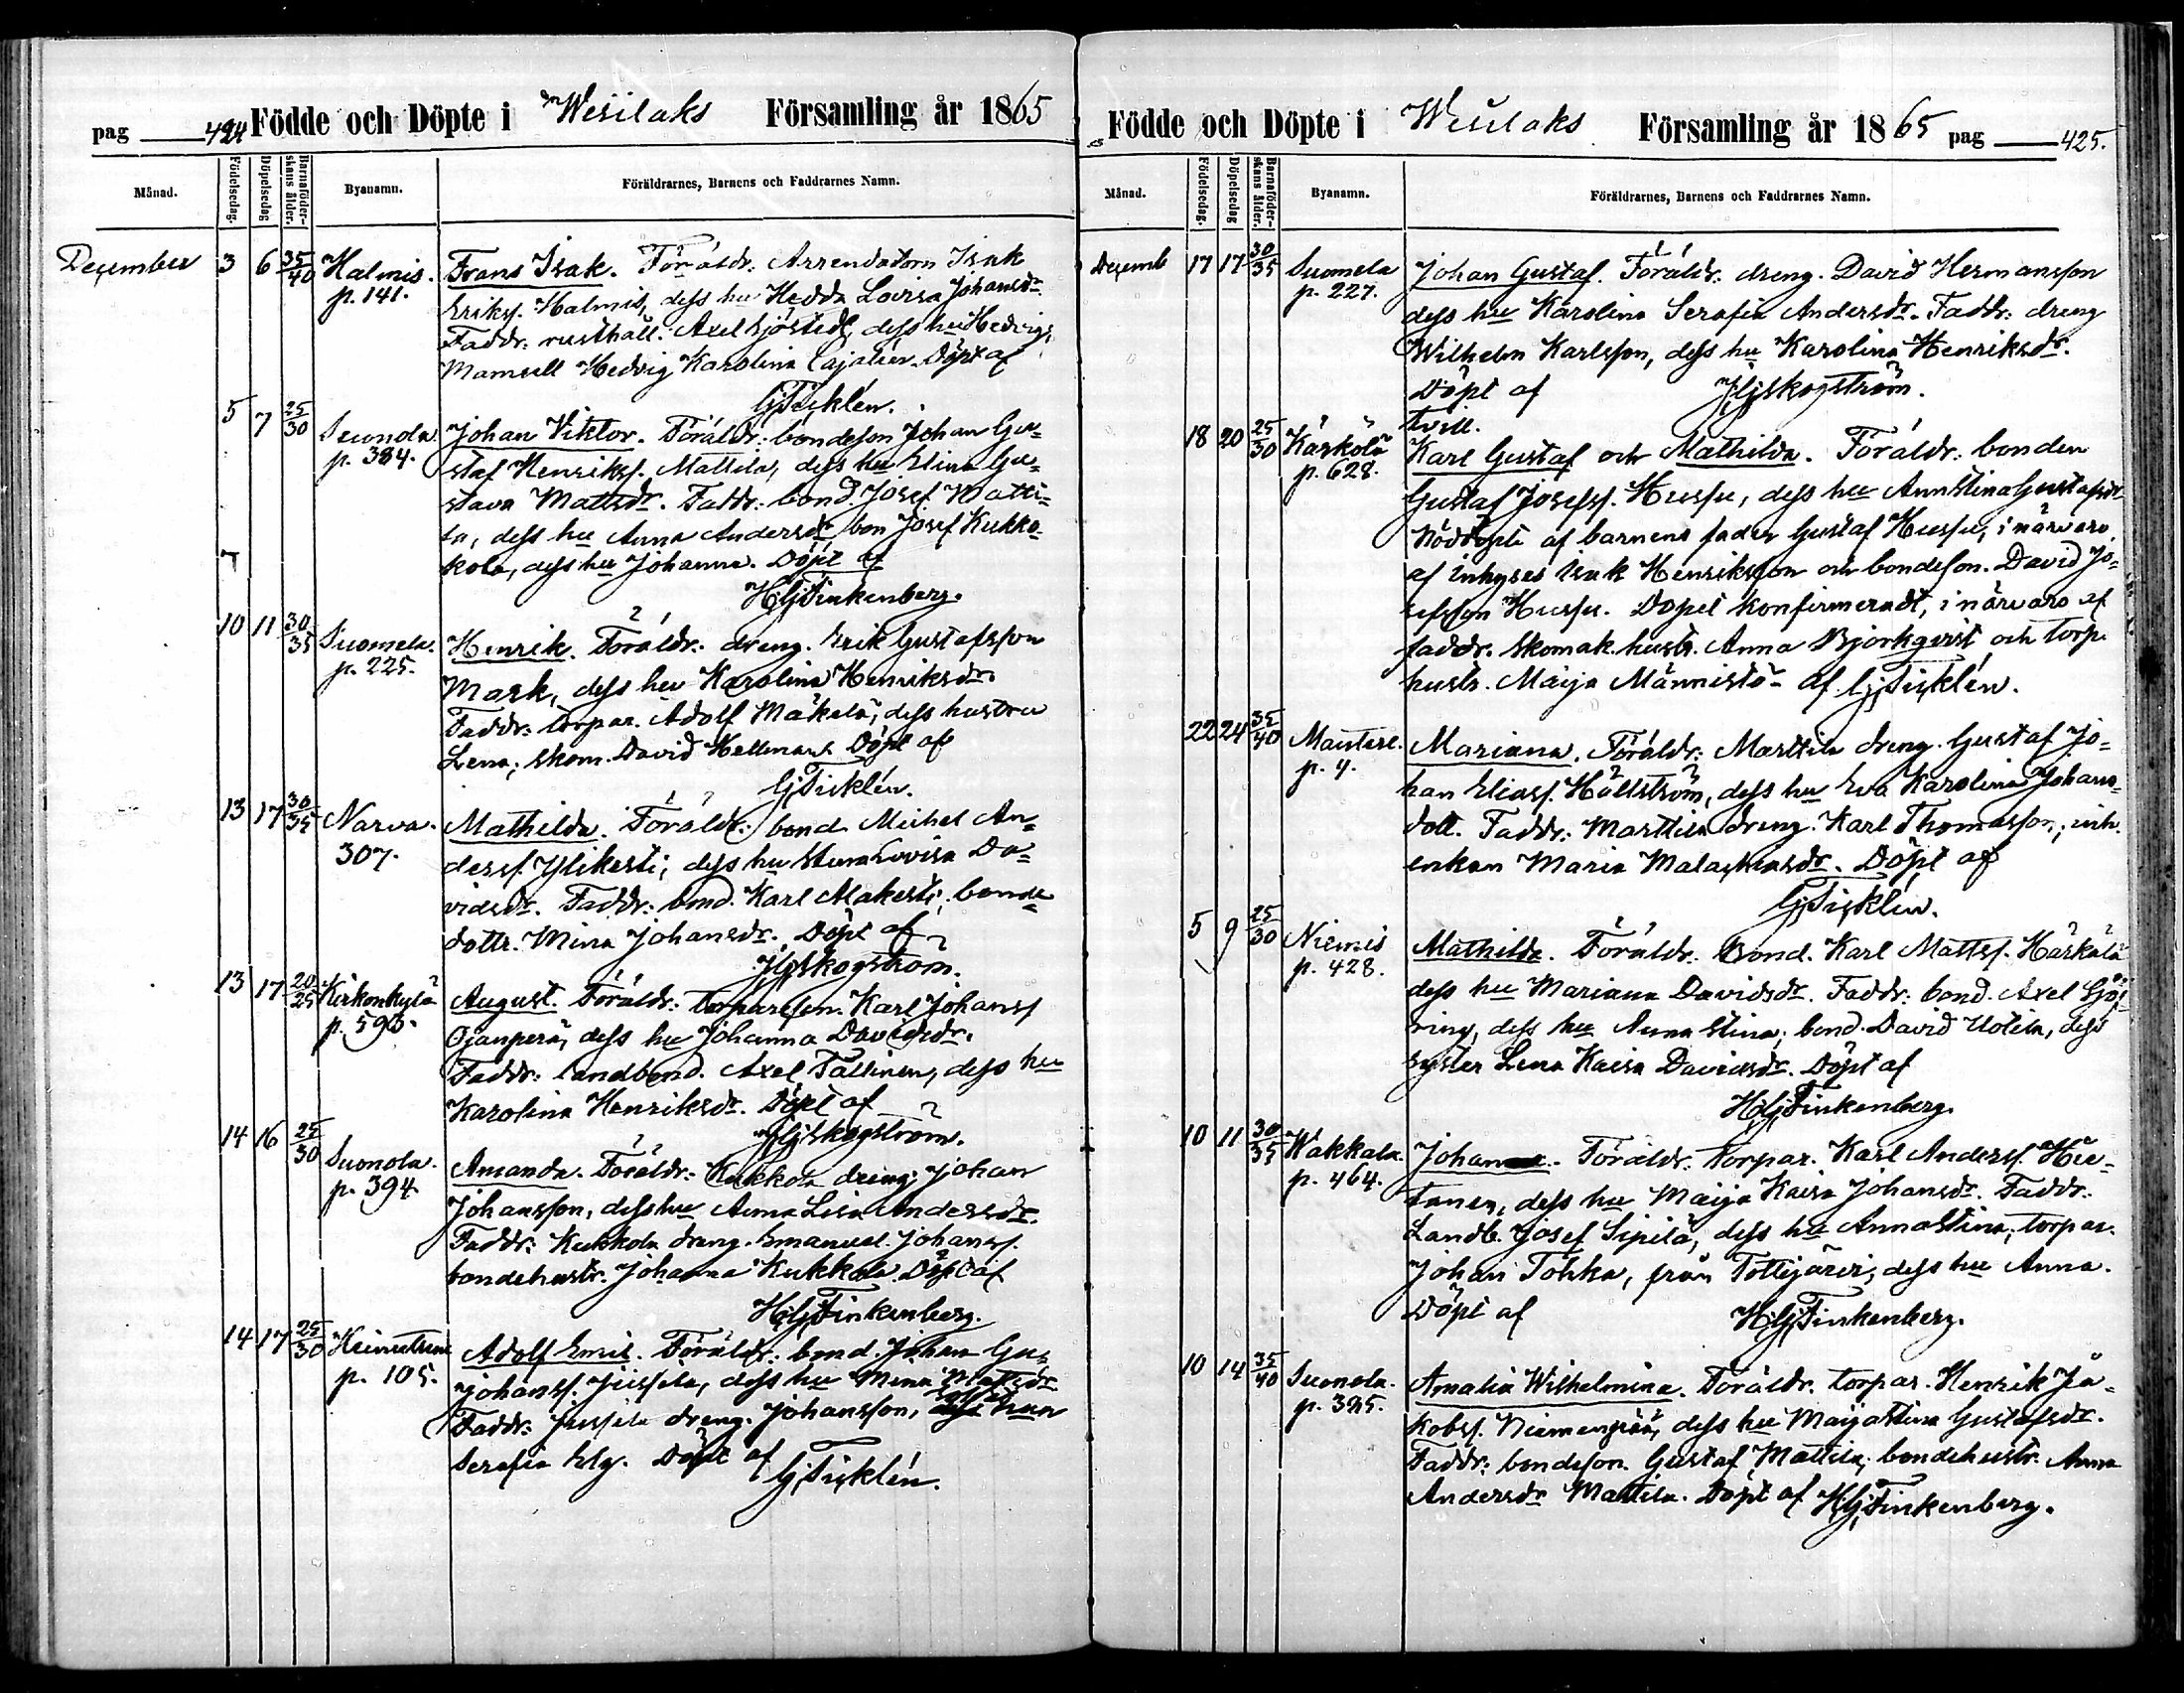 pag 424 Födde och Döpte i Wesilaks Församling år 1865
Månad. Födelsedag. Döpelsedag Barnaföderskans ålder. Byanamn. Föräldrarnes, Barnens och Faddrarnes Namn.
December 3 6 35/40 Halmis. Frans Isak. Föräldr: Arrendatorn Isak
p. 141. Eriksſ. Halmis, dess hu Hedda Lovisa Johansdr
Faddr: rusthåll. Axel Sjöstedt, dess hu Hedvig,
Mamsell Hedvig Karolina Cajalén. Döpt af
GTicklén.
5 7 25/30 Suonola Johan Viktor. Föräldr: bondeson Johan Gu=
p. 384. staf Henriksſ. Mattila, dess hu Elina Gu=
stava Mattsdr. Faddr: bond. Josef Matti=
la, dess hu Anna Andersdr, bon Josef Kukko=
kola, dess hu Johanna. Döpt af
7
HGFinkenberg.
10 11 30/35 Suomela. Henrik. Föräldr: dreng. Erik Gustafsson
p. 225. Mark, dess hu Karolina Henriksdr.
Faddr: torpar. Adolf Mäkelä, dess hustru
Lena; skom. David Hellman. Döpt af
GTicklén.
13 17 30/35 Narva. Mathilda. Föräldr: bond Michel An=
307. dersſ. Ylikesti; dess hu Stina Lovisa Da=
vidsdr. Faddr: bond. Karl Alakesti; bonde
dottr. Mina Johansdr. Döpt af
JGSkogström.
13 17 20/25 Kirkonkylä August. Föräldr: torpareson. Karl Johansſ
p. 593. Ojanperä, dess hu Johanna Davidsdr.
Faddr: landbond. Axel Tallinen, dess hu
Karolina Henriksdr. Döpt af
JGSkogström.
14 16 25/30 Suonola. Amanda. Föräldr: Kukkola dreng; Johan
p. 394. Johansson, dess hu Anna Lisa Andersdr.
Faddr: Kukkola dreng. Emanuel Johansſ.
bondehustr. Johanna Kukkola. Döpt af
HGFinkenberg.
14 17 25/30 Adolf Emil. Föräldr: bond. Johan Gu=
p. 105. Johansſ. Jussila, dess hu Mina
Faddr: Jussila dreng. Johansson,
Serafia Elg. Döpt af GTicklén.
Födde och Döpte i Wesilaks Församling år 1865 pag 425.
Månad. Födelsedag. Döpelsedag Barnaföderskans ålder. Byanamn. Föräldrarnes, Barnens och Faddrarnes Namn.
Decemb 17 17 30/35 Suomela Johan Gustaf. Föräldr: dreng. David Hermansson
p. 227. dess hu Karolina Serafia Andersdr. Faddr: dreng
Wilhelm Karlsson, dess hu Karolina Henriksdr.
Döpt af JGSkogström.
tvill.
18 20 25/30 Kärkölä Karl Gustaf och Mathilda. Föräldr: bonden
p. 628. Gustaf Josefsſ. Hussu, dess hu Anna Stina Gustafsdr
Nöddöpte af barnens fader Gustaf Hussu, i närvaro
af inhyses Isak Henriksson och bondeson. David Jo=
sefsson Hussu. Dopet konfirmeradt, i närvaro af
faddr. skomak. hustr. Anna Björkqvist och torp.
hustr. Maija Männistö - af GTicklén.
22 24 35/40 Mantere. Mariana. Föräldr: Marttila dreng. Gustaf Jo=
p. 4. han Eliasſ. Hällström, dess hu Eva Karolina Johans=
dott. Faddr: Marttila dreng. Karl Thomasson; inh.
enkan Maria Malachiasdr. Döpt af
GTicklén.
5 9 25/30 Niemis Mathilda. Föräldr: Bond. Karl Mattsſ. Härkälä
p. 428. dess hu Mariana Davidsdr. Faddr: bond. Axel Sjö=
ring, dess hu Anna Stina; bond. David Uotila, dess
syster Lena Kaisa Davidsdr. Döpt af
HGFinkenberg.
10 11 30/35 Wakkala. Johan. Föräldr: torpar. Karl Andersſ. Hu=
p. 464. tanen, dess hu Maija Kaisa Johansdr. Faddr.
Landb. Josef Sipilä, dess hu Anna Stina; torpar.
Johan Töhkä, från Tottijärvi, dess hu Anna.
Döpt af HGFinkenberg.
10 14 35/40 Suonola. Amalia Wilhelmina. Föräldr. torpar. Henrik Ja=
p. 395. kobsſ. Niemenpää, dess hu Maija Stina Gustafsdr.
Faddr: bondeson. Gustaf Mattila; bondehustr. Anna
Andersdr Mattila. Döpt af HGFinkenberg.